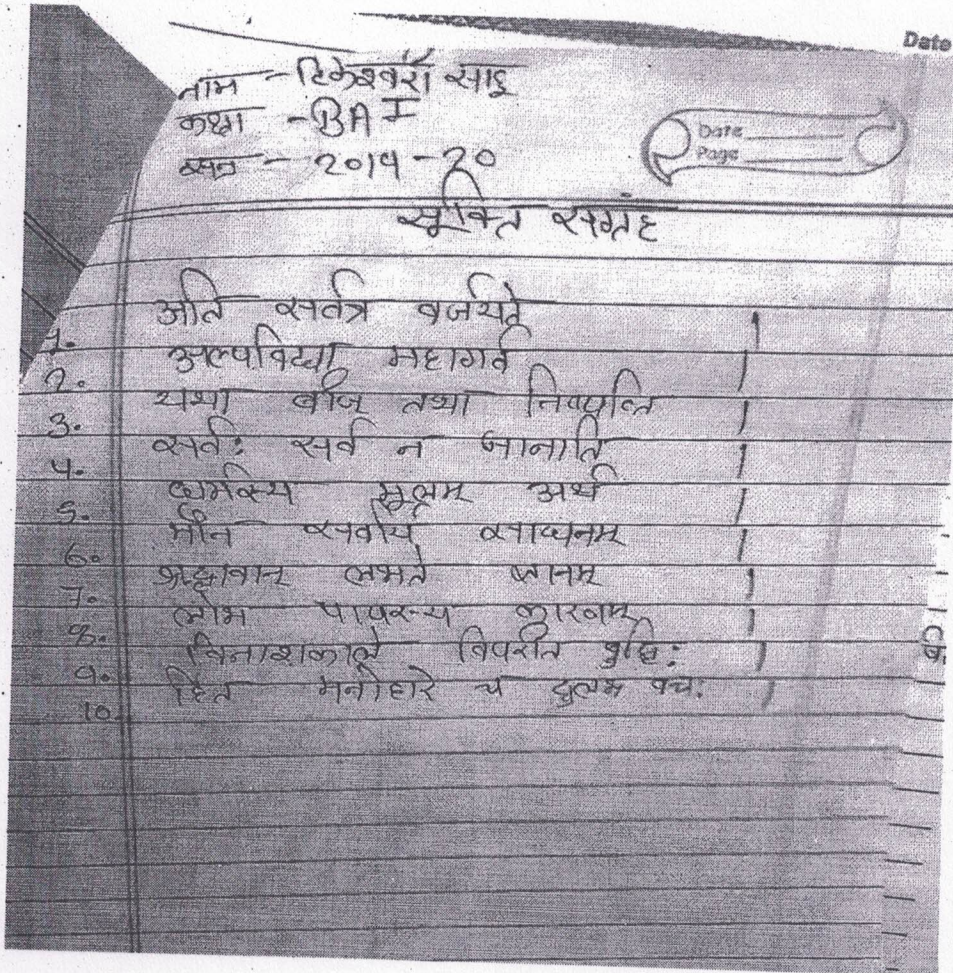 Date
नाम - टिकेश्वरी साहू
कक्षा - BA I
सत्र - 2019-20
Date
Page
सूक्ति संग्रह
1. अति सर्वत्र वर्जयते |
2. अल्पविद्या महागर्व |
3. यथा बीज तथा निष्पत्ति |
4. सर्व: सर्व न जानाति |
5. धर्मस्य मूलम अर्थ |
6. मौन सर्वार्थ साधनम |
7. श्रद्धावान लभते ज्ञानम |
8. लोभ पापस्य कारणम |
9. विनाशकाले विपरीत बुद्धि: |
10. हित मनोहारि च दुर्लभ वच: |